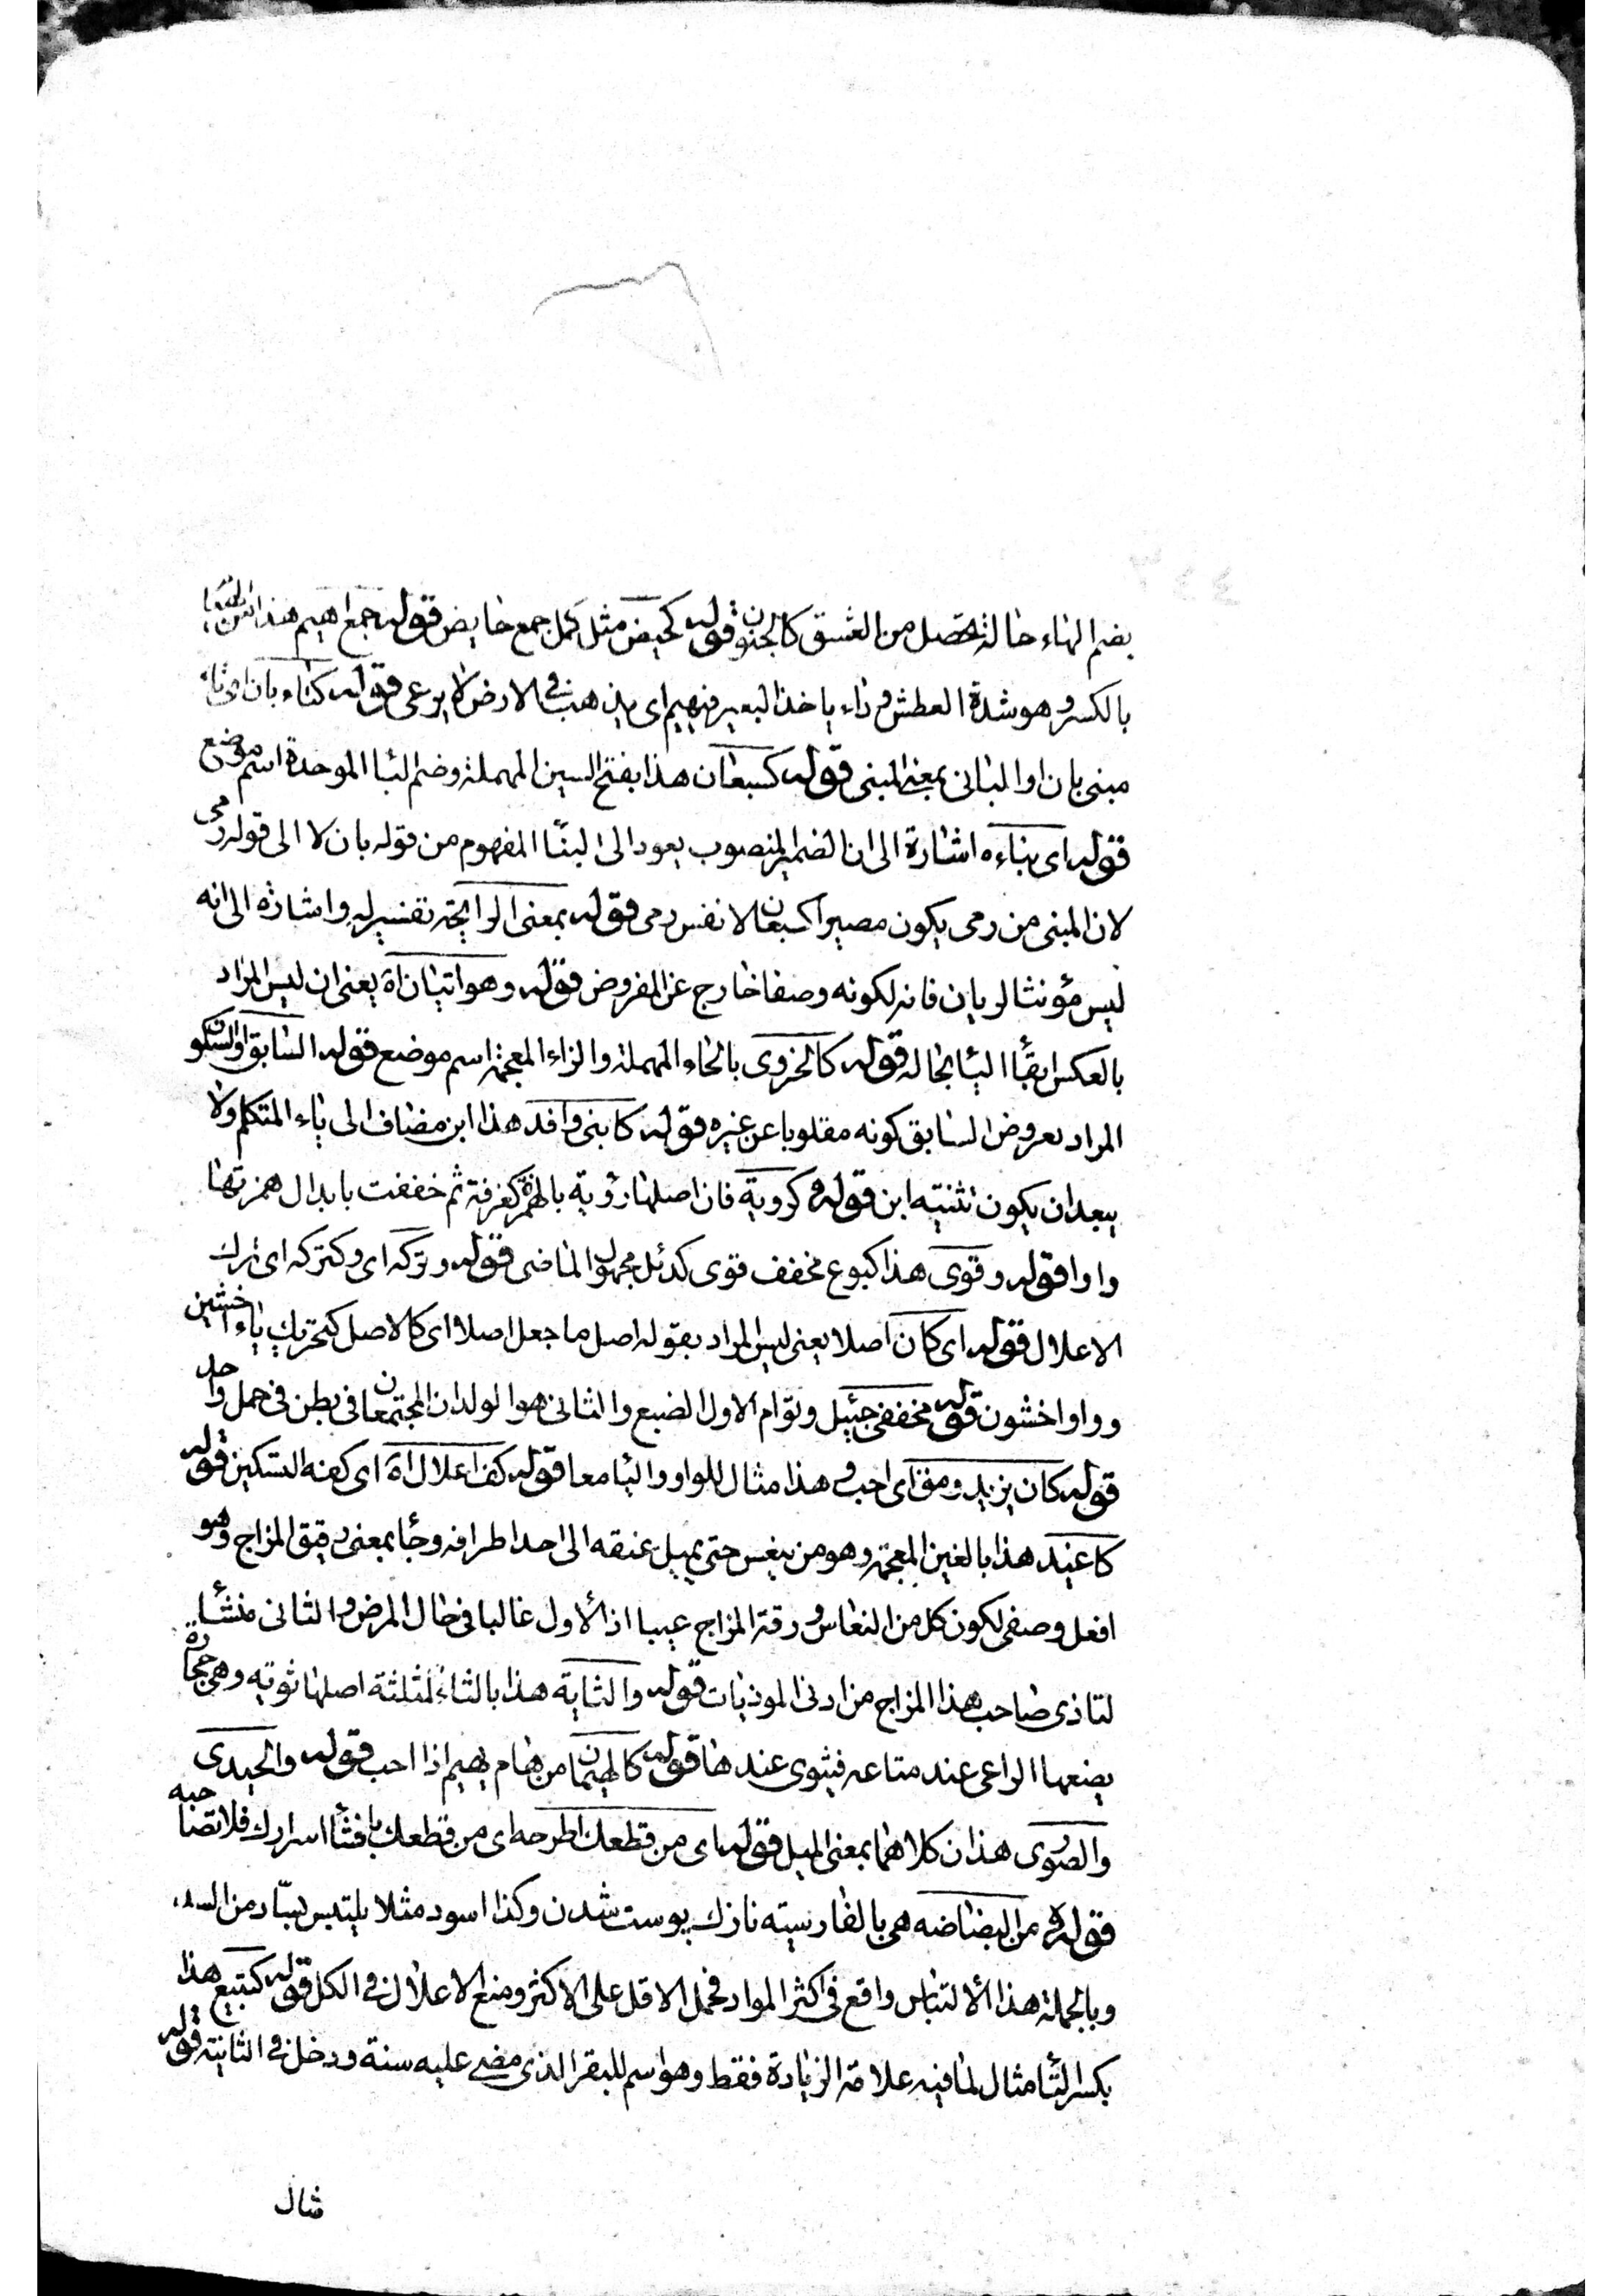 بضم الهاء حالة تحصل من العشق كالجنون قوله كحيض مثل كمل جمع حايض قوله جمع اهيم هذا
بالكسر وهو شدة العطش وداء ياخذ البعير فيهيم اى يذهب فى الارض لا يرعى قوله كبناء بان
مبنى بان او البانى بمعنى المبنى قوله كسبعان هذا بفتح السين المهملة وضم البا الموحدة اسم موضع
قوله اى بناءه اشارة الى ان الضمير المنصوب يعود الى البنا المفهوم من قوله بان لا الى قوله رمى
لان المبنى من رمى يكون مصيرا كسبعان لا نفس رمى قوله بمعنى الرايحة تفسير له واشارة الى انه
ليس مؤنثا لريان فانه لكونه وصفا خارج عن المفروض قوله وهو اتيان اه يعنى ان ليس المراد
بالعكس ابقأ اليا بحاله قوله كالحزوى بالحاء المهملة والزاء المعجمة اسم موضع قوله السابق او السكون
المراد بعروض السابق كونه مقلوبا عن غيره قوله كابنى وافد هذا ابن مضاف الى ياء المتكلم ولا
يبعد ان يكون تثنيه ابن قوله كروية فان اصلها رؤية بالهمزة كغرفة ثم خففت بابدال همزتها
واوا قوله وقوى هذا كبوع مخفف قوى كدئل مجهول الماضى قوله وتركه اى وكتركه اى ترك
الاعلال قوله اى كان اصلا يعنى ليس المراد بقوله اصل ما جعل اصلا اى كالاصل كتحريك ياء اخشين
وواو اخشون قوله مخففى جيئل وتوام الاول الضبع والثانى هو الولدان المجتمعان فى بطن فى حمل واحد
قوله كان يزيد ومق اى احب وهذا مثال للواو واليا معا قوله كف اعلال اه اى كفه التسكين قوله
كاغيد هذا بالغين المعجمة وهو من ينعس حتى يميل عنقه الى احد اطرافه وجأ بمعنى رقيق المزاج وهو
افعل وصفى لكون كل من النعاس ورقة المزاج عيبا اذ الأول غالبا فى حال المرض والثانى منشأ
لتاذى صاحب هذا المزاج من ادنى الموذيات قوله والثاية هذا بالثاء المثلثة اصلها ثويه وهى حجارة
يضعها الراعى عند متاعه فيثوى عندها قوله كالهيمان من هام يهيم اذا احب قوله والحيدى
والصورى هذان كلاهما بمعنى الميل قوله اى من قطعك اطرحه اى من قطعك بافشأ اسرارك فلا تصاحبه
قوله من البضاضه هى بالفارسيته نازك پوست شدن وكذا اسود مثلا يلتبس بسادّ من
وبالجملة هذا الألتباس واقع فى اكثر المواد فحمل الاقل على الاكثر ومنع الاعلال فى الكل قوله كتبيع هذا
بكسر التأ مثال لما فيه علامة الزيادة فقط وهو اسم للبقر الذى مضى عليه سنة ودخل فى الثانيته قوله
مثال